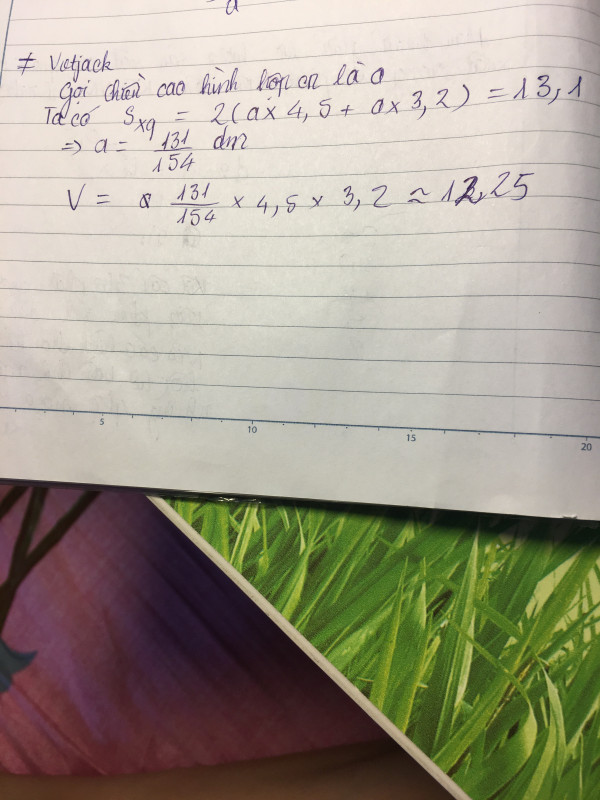 a
≠ Vietjack
Gọi chiều cao hình hộp cn là a
Ta có Sxq = 2(a x 4,5 + a x 3,2) = 13,1
=> a = 131/154 dm
V = 131/154 x 4,5 x 3,2 ≈ 12,25
5 10 15 20